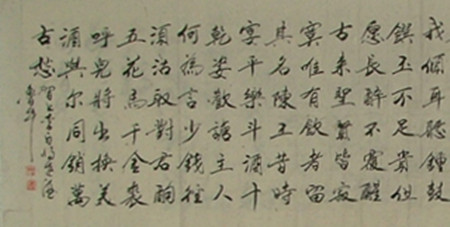 我倾耳聽鍾鼓
饌玉不足貴但
愿長醉不覆醒
古来聖賢皆寂
寞唯有飲者留
其名陳王昔時
宴平樂斗酒十
乾姿歡謔主人
何為言少錢徑
須沽取對君酌
五花馬千金裘
呼兒將出换美
酒與尔同銷萬
古愁
李白將進酒